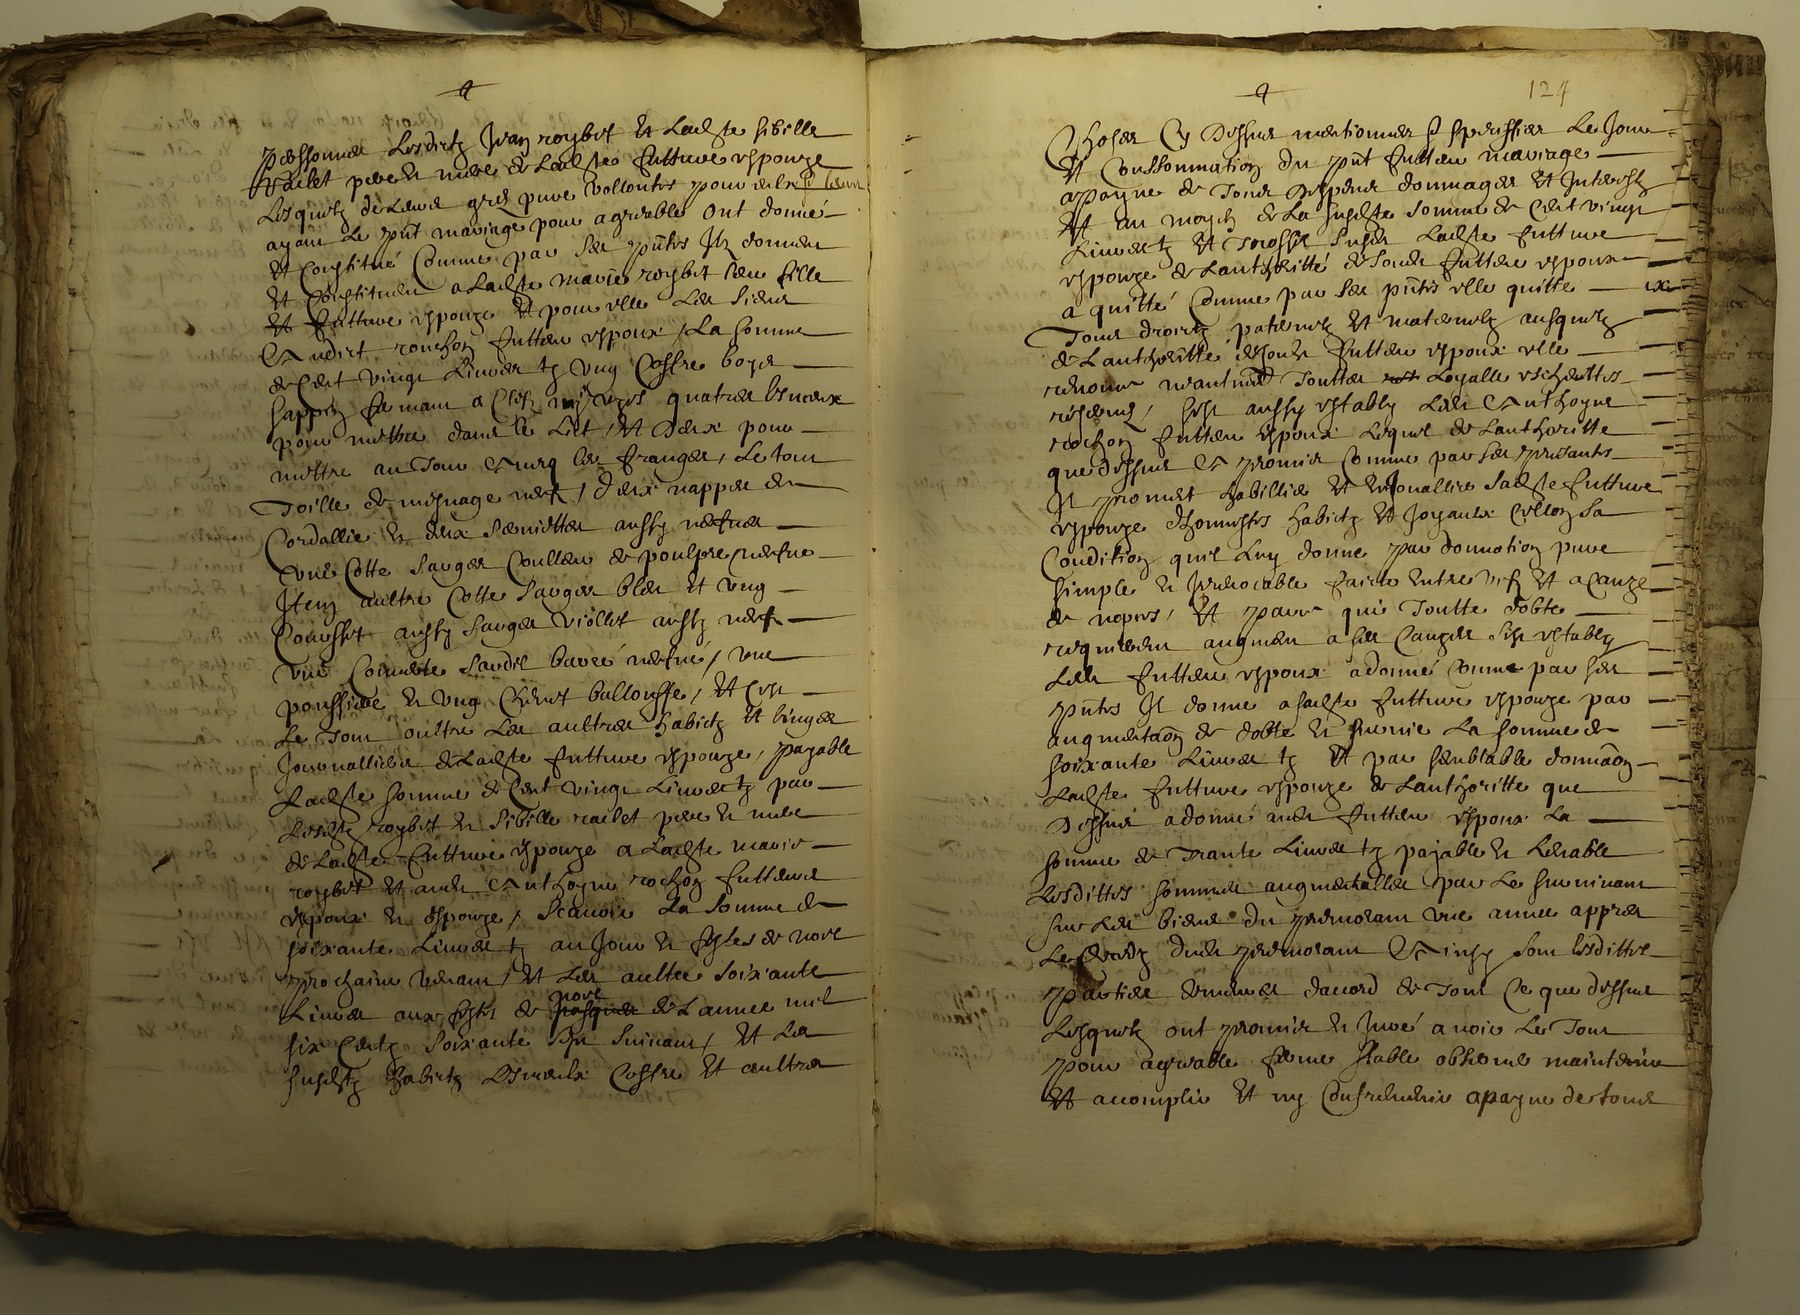 personnes Lesdictz Jean roybet Et Ladte sibille
raclet pere et mere de Ladte future espouze
Lesquelz de Leurs grez pure vollontes pour eulx
ayant Le pnt mariage pour agreable ont donné
Et Constitué Comme par Ses pntes Ilz donnent
Et Constituent a Ladte marie roybet leur fille
Et future espouze Et pour elle Les Siens
Audict rochon futteur espoux / La somme
de Cent vingt Livres tz ung Coffre boys
sappin fermant a Clefz quatre linceux
pour mettre dans le Lict / Et deux pour
mettre au Tour les franges, Le tout
Toille de mesnage neuf / deux nappes de
Cordallie et deux serviettes aussy neufves
une Cotte Sarges Coulleur de poulpre neufve
Item aultre Cotte Sarges bleu Et ung
Courssét aussy Sarges viollet aussy neuf
une Couverte Sardis barré neufve / une
poussiere et ung Chevet ballouffe / Et C'est
Le Tout oultre Les aultres habictz Et linges
Journalliers de Ladte future espouze / payable
Ladte somme de Cent vingt Livres tz par
Lesdtz roybet et Sibille raclet pere et mere
de Ladte future espouze a Ladte marie
roybet Et audit Anthoyne rochon futteurs
espoux et espouze / Scavoir La Somme de
soixante Livres tz au Jour et festes de noel
prochain venant / Et Les aultres soixante
Livres aux festes de noel pasques de L'annee mil
six Centz soixante Sept suivant / Et Les
susdtz habictz Linceulx Coffre Et aultres
124
Choses Cy dessus mentionnes Le Jour
Et Consommation du pnt futteur mariage
apayne de Tous despens dommages Et Interestz
Et au moyen de La susdte somme de Cent vingt
Livres tz Et trossel susdt Ladte future
espouze de L'authoritté de Sondt futteur espoux
a quitté Comme par Ses pntes elle quitte
Tous droictz paternelz Et maternelz ausquelz
de L'authoritté de Sondt futteur espoux elle
renonce neantmoins Touttes Loyalle escheuttes
reservés / s'est aussy estably Ledt Anthoyne
rochon futteur espoux Lequel de L'authoritte
que dessus A promis Comme par Ses presantes
Il promet habillier Et enJoualler Sadte future
espouze d'honnestes habictz Et Joyaulx Cellon sa
Condition qu'il Luy donne par donnation pure
simple et Irrevocable faicte entre vifz Et a Cauze
de nopces / Et parce que Toutte dobte
requierent augment a Ses Cauzes s'est estably
Ledt futteur espoux a donné Comme par Ses
pntes Il donne a sadte future espouze par
augmentaon de dobte et survie La somme de
soixante Livres tz Et par semblable donnaon
Ladte future espouze de L'authoritte que
dessus a donné audt futteur espoux La
somme de Trante Livres tz payable et Levable
Lesdittes sommes augmentalles par Le survivant
sur Les biens du premorant une annee appres
Le deces dudt premorant Et Ainsy sont Lesdittes
parties demeures d'accord de Tout Ce que dessus
Lesquelz ont promis et Juré avoir Le Tout
pour agreable ferme stable observer maintenir
Et accomplir Et ny Contrevenir apayne de tous